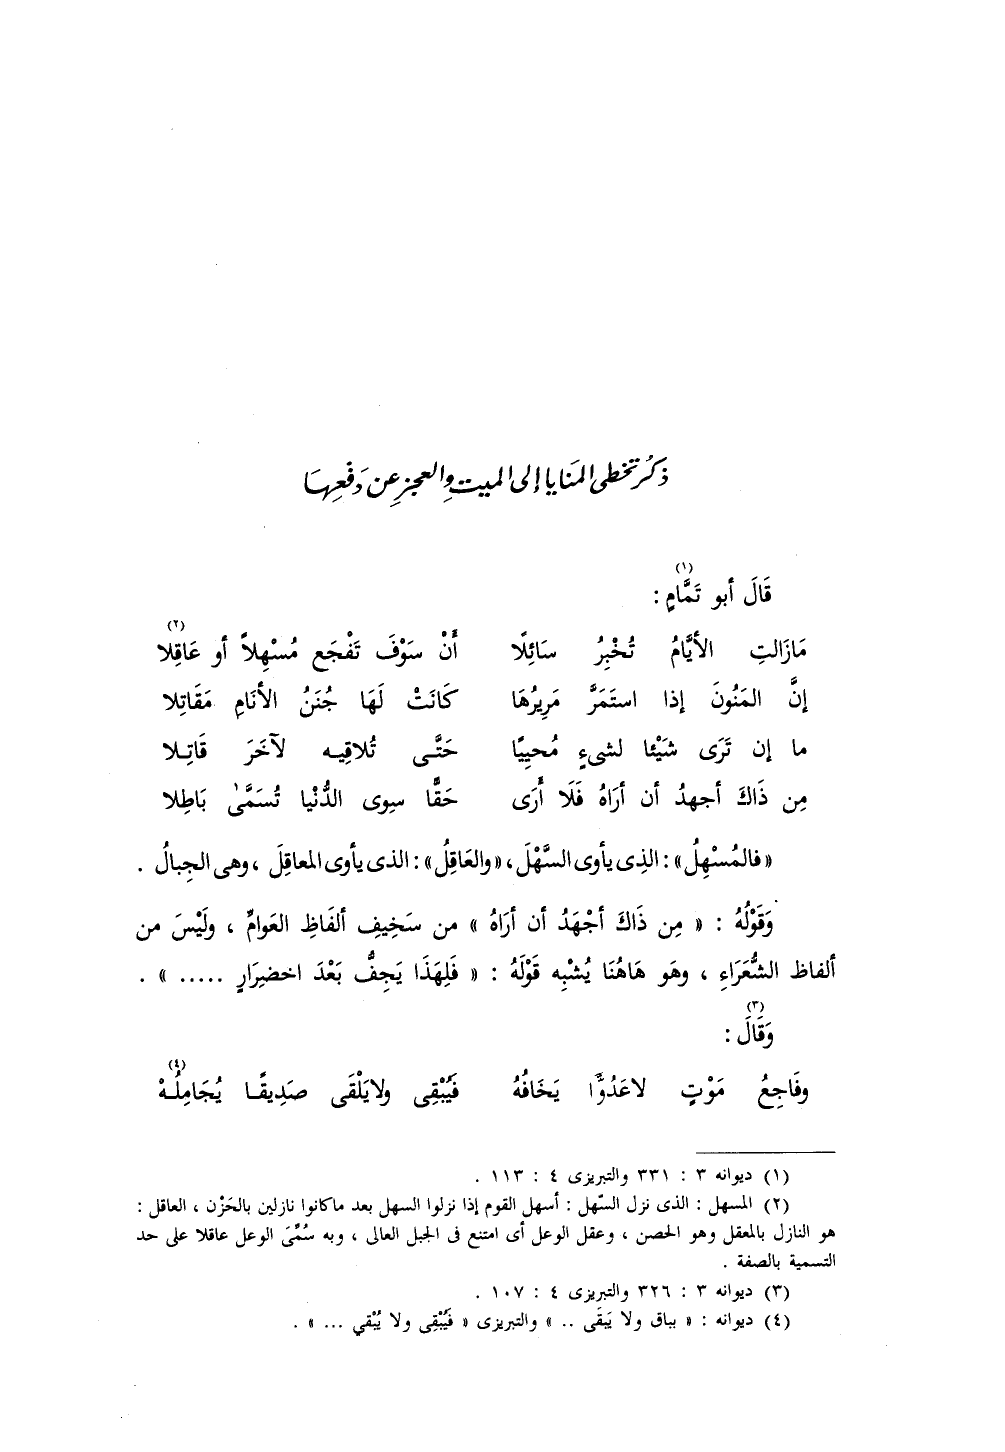 ذكرُ تخطى المَنايا إلى الميت والعجزِ عن دَفعِها
قَالَ أبو تَمَّامٍ (١) :
مَازَالتِ الأيَّامُ تُخْبِرُ سَائِلًا أَنْ سَوْفَ تَفْجَع مُسْهِلاً أو عَاقِلا (٢)
إنَّ المَنُونَ إذا استَمَرَّ مَرِيرُهَا كَانَتْ لَهَا جُنَنُ الأنَامِ مَقَاتِلا
ما إن تَرَى شَيْئا لشىءٍ مُحيِيًا حَتَّى تُلاقِيه لآخَرَ قَاتِلا
مِن ذَاكَ أجهدُ أن أرَاهُ فَلَا أَرَى حَقًّا سِوى الدُّنْيا تُسَمَّىٰ بَاطِلا
« فالمُسْهِلُ » : الذِى يأوى السَّهْلَ ، « والعَاقِلُ » : الذى يأوى المعاقِلَ ، وهى الجِبالُ .
وَقَوْلُهُ : « مِن ذَاكَ أجْهَدُ أن أرَاهُ » من سَخِيفِ ألفَاظِ العَوامِّ ، ولَيْسَ من
ألفاظ الشُّعَرَاءِ ، وهَو هَاهُنَا يُشْبِه قَوْلَهُ : « فَلِهَذَا يَجِفُّ بَعْدَ اخضِرَارٍ ..... » .
وَقَالَ (٣) :
وفَاجِعُ مَوْتٍ لاعَدُوًّا يَخَافُهُ فَيُبْقِى ولايَلْقَى صَدِيقًا يُجَامِلُهْ (٤)
(١) ديوانه ٣ : ٣٣١ والتبريزى ٤ : ١١٣ .
(٢) المسهل : الذى نزل السّهل : أسهل القوم إذا نزلوا السهل بعد ماكانوا نازلين بالحَزْن ، العاقل :
هو النازل بالمعقل وهو الحصن ، وعقل الوعل أى امتنع فى الجبل العالى ، وبه سُمِّىَ الوعل عاقلا على حد
التسمية بالصفة .
(٣) ديوانه ٣ : ٣٢٦ والتبريزى ٤ : ١٠٧ .
(٤) ديوانه : « بباق ولا يَبقَى .. » والتبريزى « فَيُبْقِى ولا يُبْقي ... » .